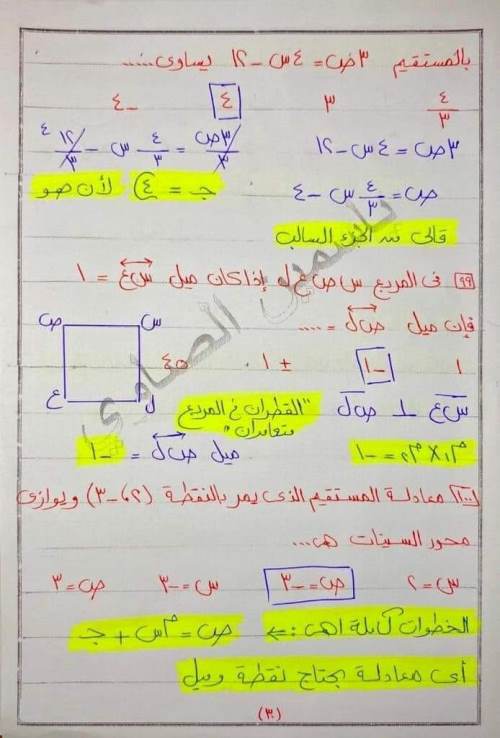 بالمستقيم ٣ص = ٤س - ١٢ يساوى .....
٤/٣ ٣ ٤ -٤
٣ص = ٤س - ١٢ ٣ص/٣ = ٤/٣ س - ١٢/٣ ٤
ص = ٤/٣ س - ٤ جـ = ٤ لأن هو
قالى من الجزء السالب
٩٩ فى المربع س ص ع ل إذا كان ميل س ع = ١
فإن ميل ص ل = ....
س ص
١ -١ ± ١ ٤٥
ل ع
س ع ⊥ ص ل "القطران فى المربع
متعامدان"
م١ × م٢ = -١ ميل ص ل = -١
١٠٠ معادلة المستقيم الذى يمر بالنقطة (٢، -٣) ويوازى
محور السينات هى ...
س = ٢ ص = -٣ س = -٣ ص = ٣
الخطوات كاملة اهى :⇐ ص = م س + جـ
أى معادلة يحتاج نقطة وميل
(٣٠)
ياسمين الصاوي